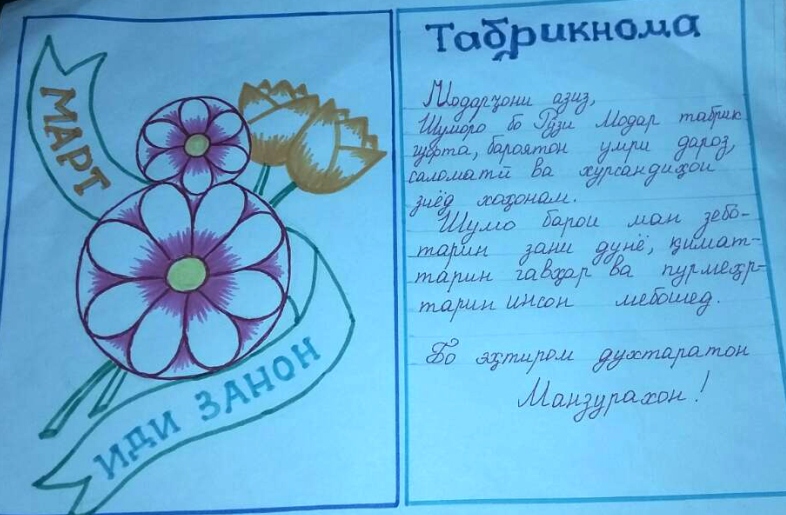 МАРТ
ИДИ ЗАНОН
Табрикнома
Модарҷони азиз,
Шуморо бо Рӯзи Модар табрик
гуфта, бароятон умри дароз,
саломатӣ ва хурсандиҳои
зиёд хоҳонам.
Шумо барои ман зебо-
тарин зани дунё, қимат-
тарин гавҳар ва пурмеҳр-
тарин инсон мебошед.
Бо эҳтиром духтаратон
Манзурахон!